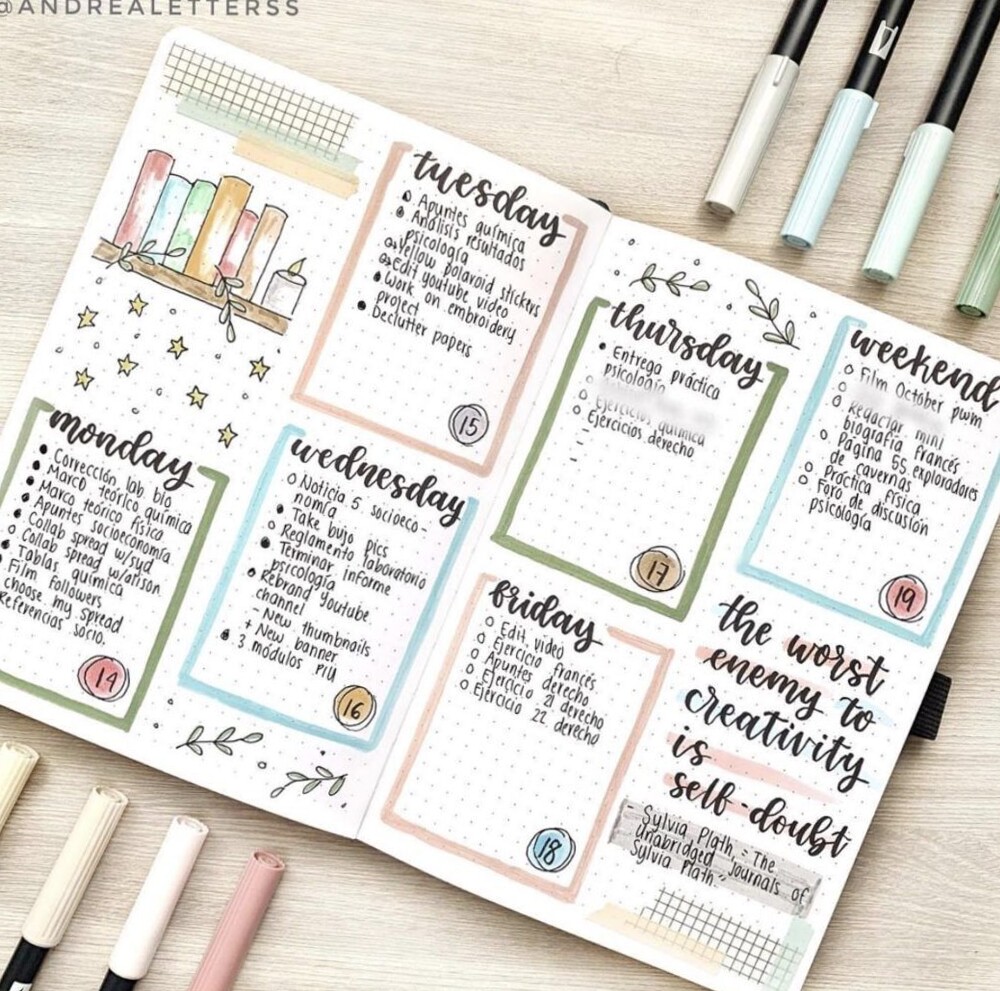 @ANDREALETTERSS
tuesday
Apuntes química
Análisis resultados
psicología
Yellow polaroid stickers
Edit youtube video
Work on embroidery
project
Declutter papers
15
monday
Corrección lab. bio
Marco teórico química
Marco teórico física
Apuntes socioeconomía
Collab spread w/syd
Collab spread w/arison
Tablas química
Film followers
choose my spread
Referencias socio.
14
wednesday
Noticia 5 socioeco-
nomía
Take bujo pics
Reglamento laboratorio
Terminar informe
psicología
Rebrand Youtube
channel
- New thumbnails
+ New banner
3 módulos PIU
16
thursday
Entrega práctica
psicología
Ejercicios química
Ejercicios derecho
-
-
17
friday
Edit video
Ejercicio francés
Apuntes derecho
Ejercicio 21 derecho
Ejercicio 22 derecho
18
weekend
Film October pwm
Redactar mini
biografía francés
Página 55 exploradores
de cavernas
Práctica física
Foro de discusión
psicología
19
the worst
enemy to
creativity
is
self-doubt
- Sylvia Plath, "The
Unabridged Journals of
Sylvia Plath"